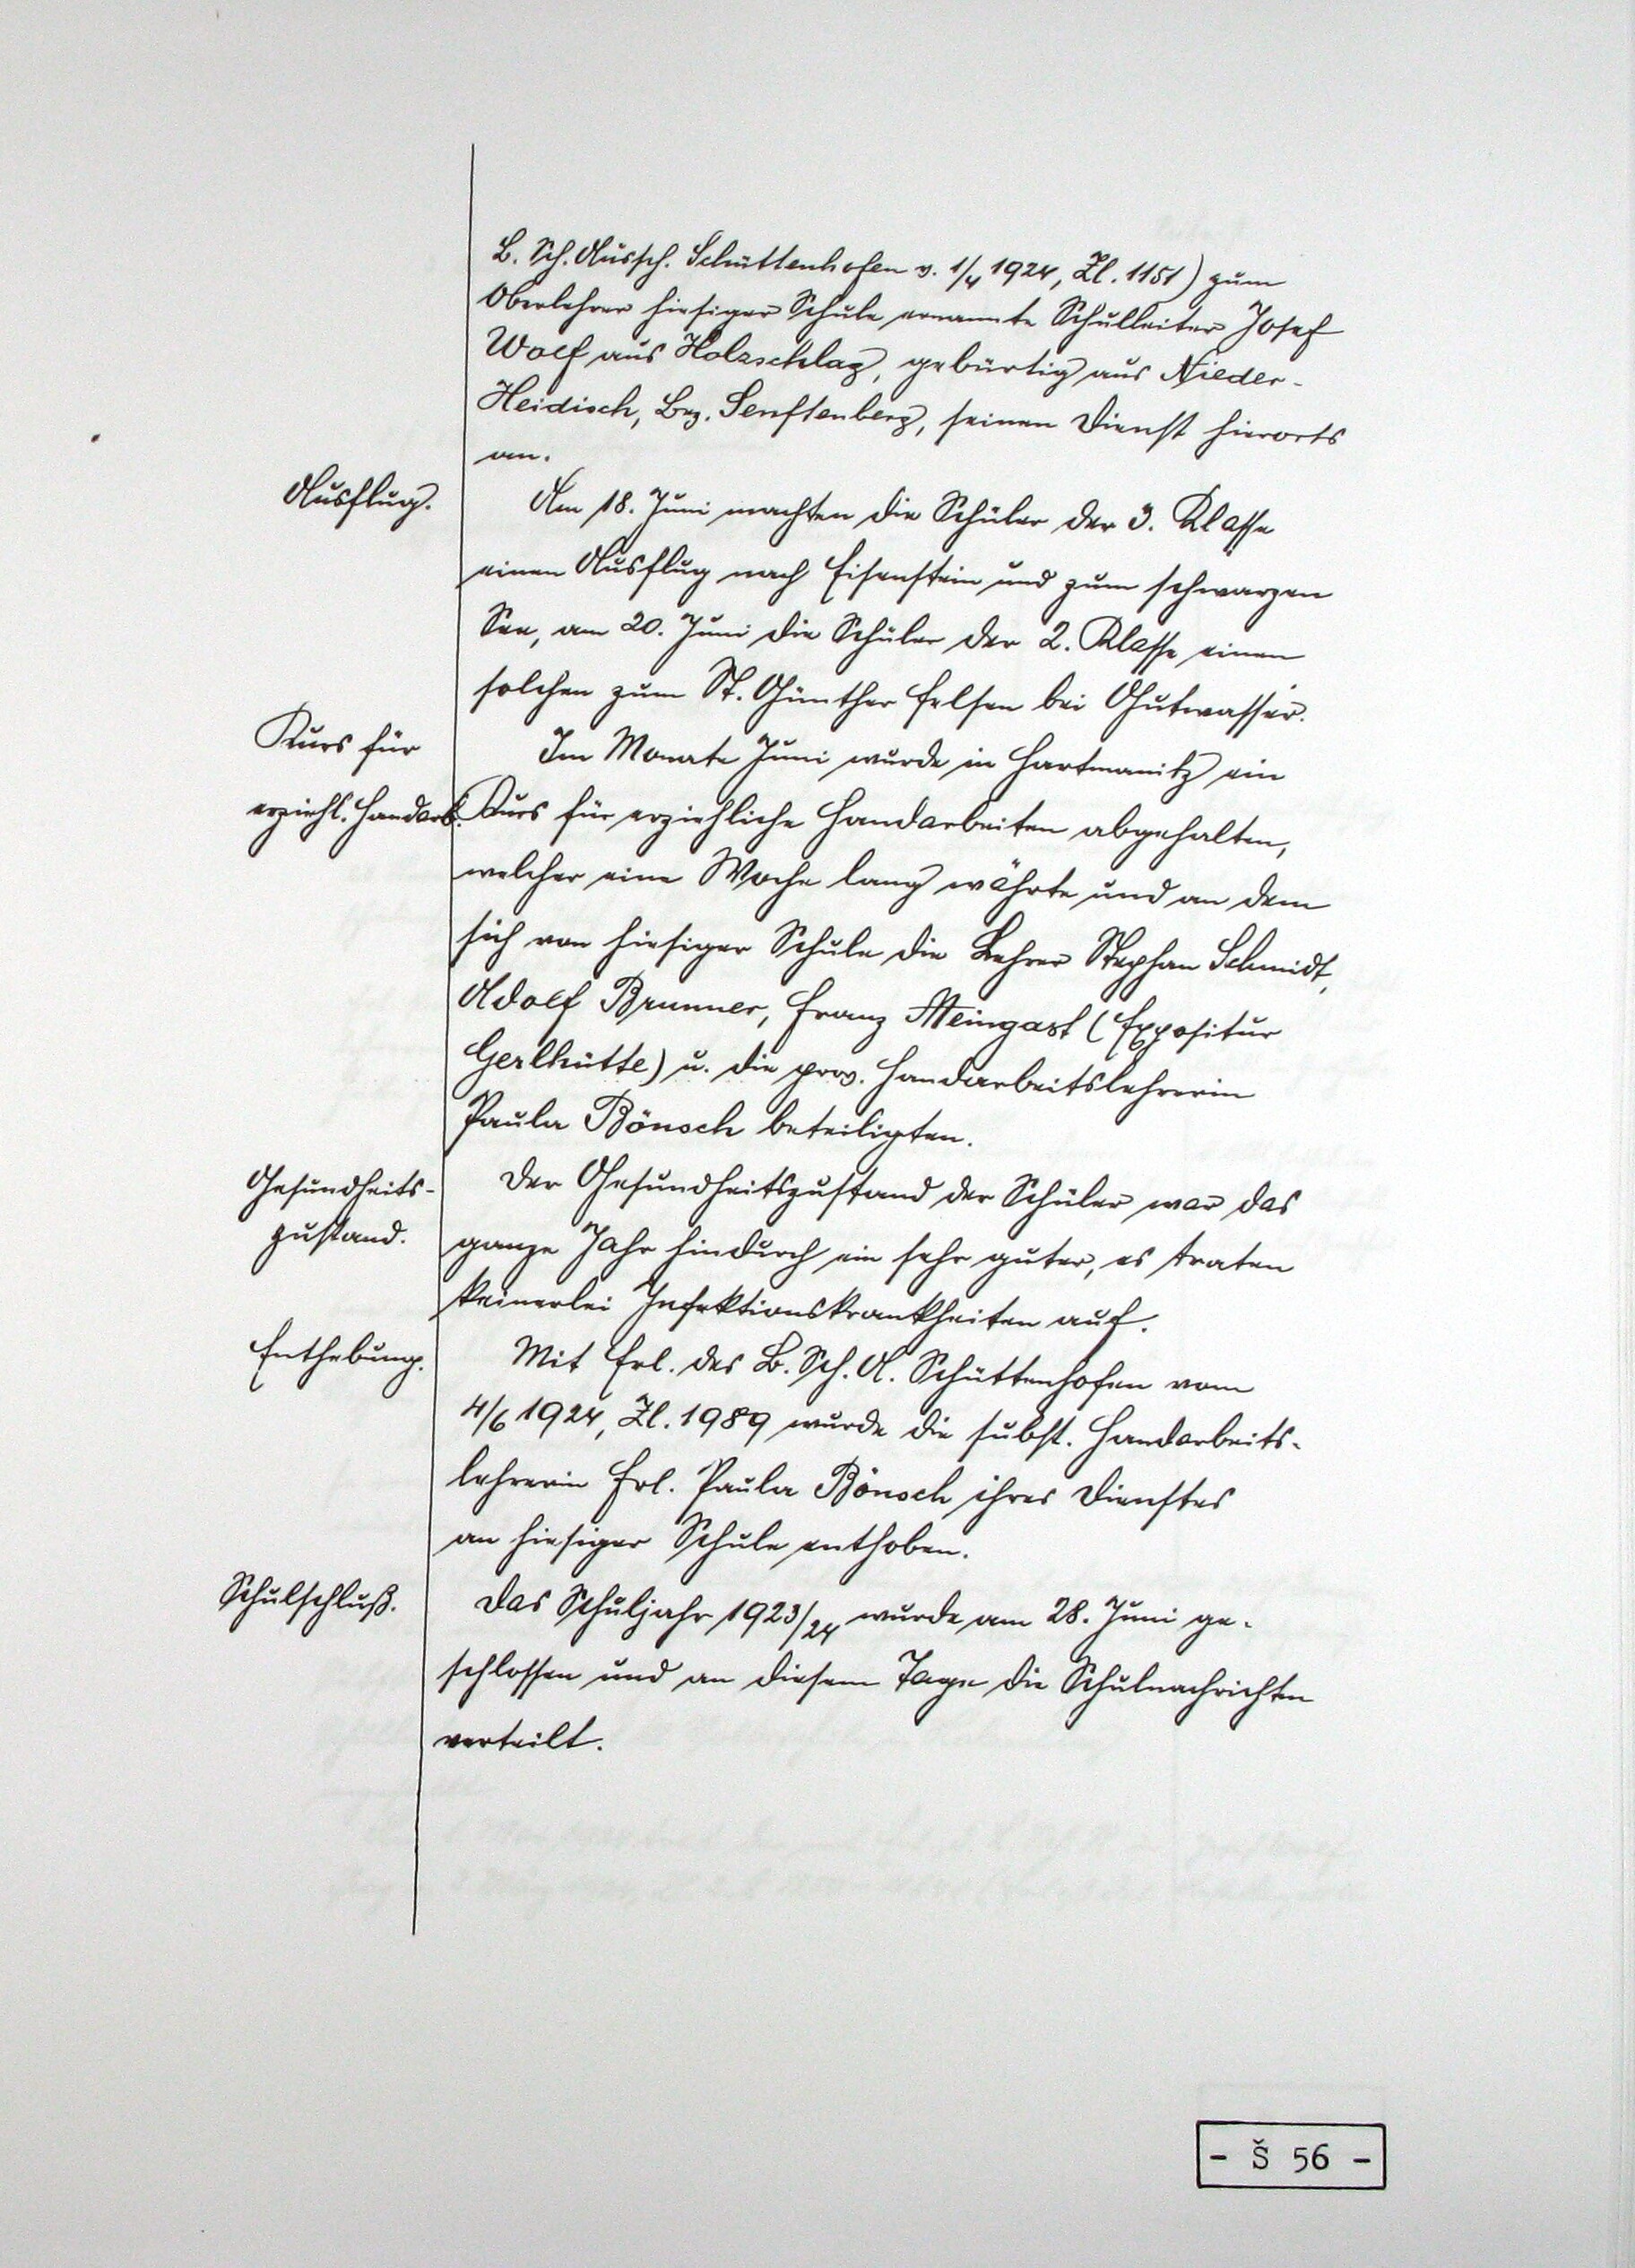 B. Sch. Aussch. Schüttenhofen v. 1/4 1924, Zl. 1151) zum
Oberlehrer hiesiger Schule ernannte Schulleiter Josef
Wolf aus Holzschlag, gebürtig aus Nieder-
Heidisch, Bez. Senftenberg, seinen Dienst hierorts
an.
Ausflug.
Am 18. Juni machten die Schüler der 3. Klasse
einen Ausflug nach Eisenstein und zum schwarzen
See, am 20. Juni die Schüler der 2. Klasse einen
solchen zum St. Günther Felsen bei Gutwasser.
Kurs für
Im Monate Juni wurde in Hartmanitz ein
erziehl. Handarb.
Kurs für erziehliche Handarbeiten abgehalten,
welcher eine Woche lang währte und an dem
sich von hiesiger Schule die Lehrer Stephan Schmidt,
Adolf Brunner, Franz Meingast (Expositur
Gerlhütte) u. die prov. Handarbeitslehrerin
Paula Bönsch beteiligten.
Gesundheits-
zustand.
Der Gesundheitszustand der Schüler war das
ganze Jahr hindurch ein sehr guter, es traten
keinerlei Infektionskrankheiten auf.
Enthebung.
Mit Erl. des B. Sch. A. Schüttenhofen vom
4/6 1924, Zl. 1989 wurde die subst. Handarbeits-
lehrerin Frl. Paula Bönsch ihres Dienstes
an hiesiger Schule enthoben.
Schulschluß.
Das Schuljahr 1923/24 wurde am 28. Juni ge-
schlossen und an diesem Tage die Schulnachrichten
verteilt.
- Š 56 -